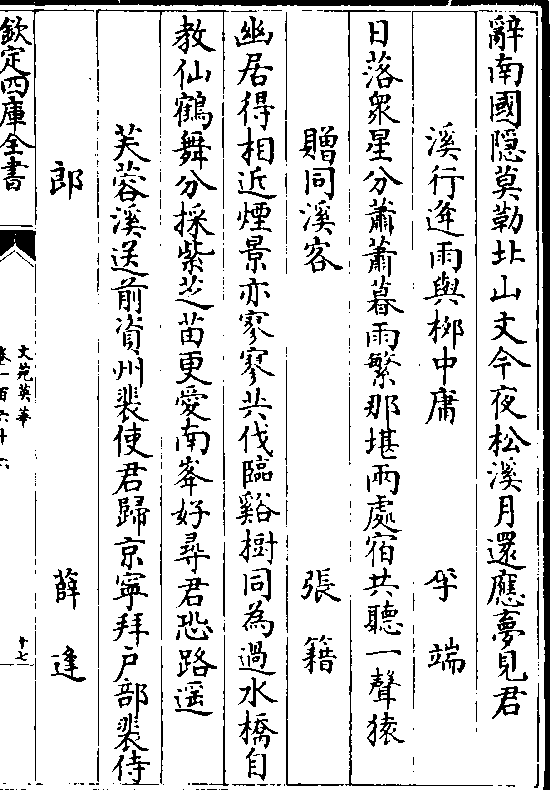 辭南國隱莫勒北山文今夜松溪月還應夢見君
溪行逢雨與栁中庸 李端
日落衆星分蕭蕭暮雨繁那堪兩處宿共聽一聲猿
贈同溪客 張籍
幽居得相近煙景亦寥寥共伐臨谿樹同為過水橋自
教仙鶴舞分採紫芝苗更愛南峯好尋君恐路遥
芙蓉溪送前資州裴使君歸京寧拜户部裴侍
郎 薛逢
欽定四庫全書
文苑英華
卷一百六十六
十七